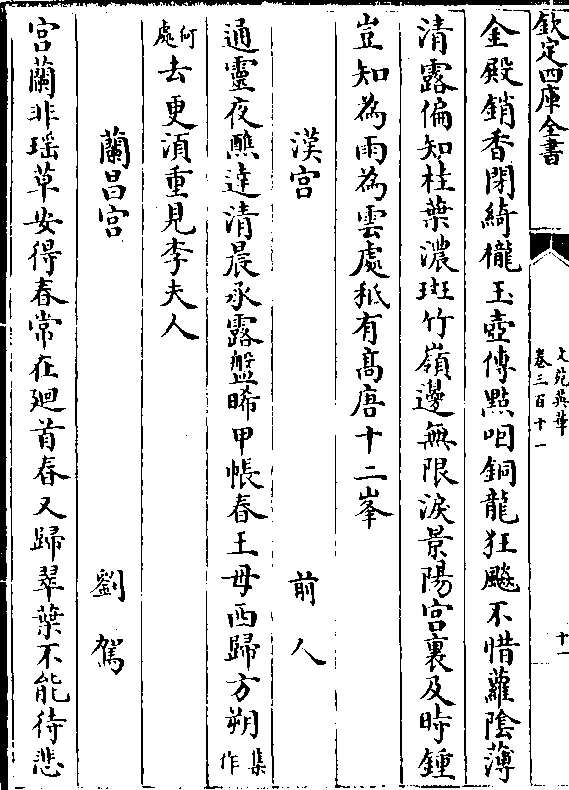 欽定四庫全書
文苑英華
卷三百十一
十一
金殿銷香閉綺櫳玉壺傳㸃咽銅龍狂飇不惜蘿陰薄
清露偏知桂葉濃斑竹嶺邊無限淚景陽宫裏及時鍾
豈知為雨為雲處秪有髙唐十二峯
漢宫　前人
通靈夜醮達清晨承露盤晞甲帳春王母西歸方朔集作
何處去更須重見李夫人
蘭昌宫　劉駕
宫蘭非瑶草安得春常在廻首春又歸翠葉不能待悲